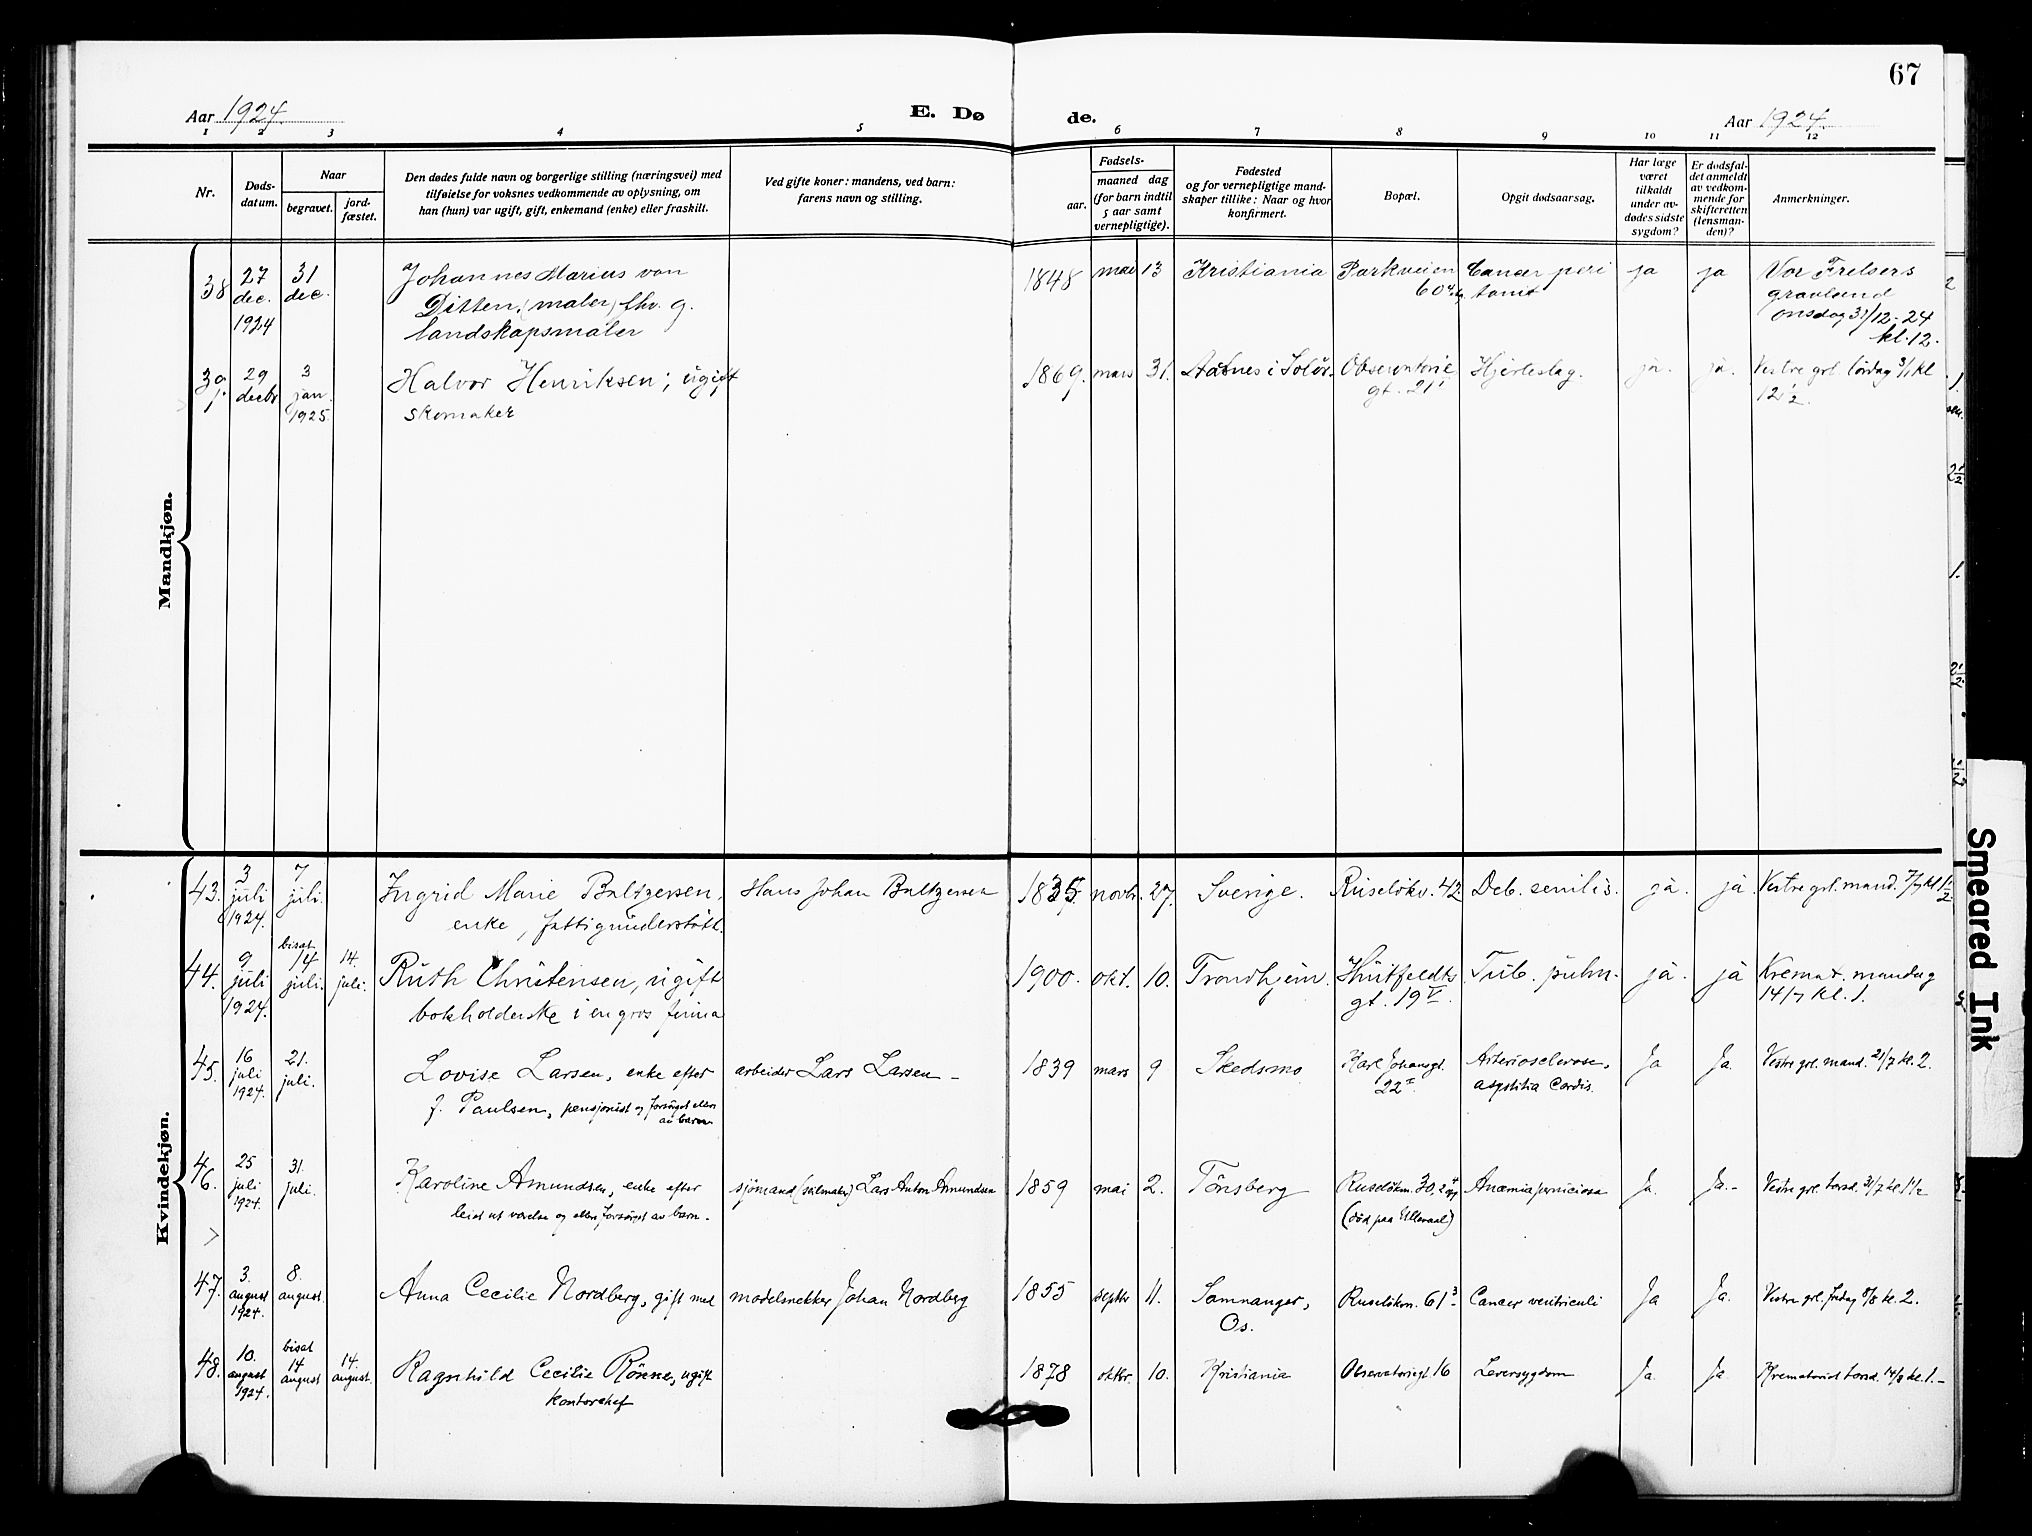 67
Aar 1924.
E. Dø
de.
Aar 1924.
1 2 3 4 5 6 7 8 9 10 11 12
Nr.
Døds-
datum.
Naar
begravet.
jord-
fæstet.
Den dødes fulde navn og borgerlige stilling (næringsvei) med
tilføielse for voksnes vedkommende av oplysning, om
han (hun) var ugift, gift, enkemand (enke) eller fraskilt.
Ved gifte koner: mandens, ved barn:
farens navn og stilling.
Fødsels-
aar.
maaned dag
(for barn indtil
5 aar samt
vernepligtige).
Fødested
og for vernepligtige mand-
skaper tillike: Naar og hvor
konfirmert.
Bopæl.
Opgit dødsaarsag.
Har læge
været
tilkaldt
under av-
dødes sidste
sygdom?
Er dødsfal-
det anmeldt
av vedkom-
mende for
skifteretten
(lensman-
den)?
Anmerkninger.
Mandkjøn.
38 27 dec. 1924 31 dec.
Johannes Marius von
Ditten, (maler) fhv. g.
landskapsmaler
1848 mai 13 Kristiania Parkveien
60
Cancer peri
tonit
ja ja
Vor Frelsers
gravlund
onsdag 31/12-24
kl. 12.
39 29 decbr 3 jan. 1925.
Halvor Henriksen; ugift
skomaker
1869. mars 31. Aasnes i Solør. Observatorie
gt. 21
Hjerteslag. ja. ja.
Vestre grl. lördag 3/1 kl
12 1/2.
Kvindekjøn.
43. 3 juli 1924. 7 juli.
Ingrid Marie Baltzersen,
enke, fattigunderstött.
Hans Johan Baltzersen
1835. novbr. 27. Sverige. Ruselökv. 42 Deb. senilis. ja. ja.
Vestre grl. mand. 7/7 kl 1 1/2
44. 9 juli 1924. bisat 14 juli. 14. juli.
Ruth Christensen, ugift
bokholderske i en gros firma
1900. okt. 10. Trondhjem. Huitfeldts
gt. 19 V.
Tub. pulm. ja. ja
Kremat. mandag
14/7 kl. 1.
45. 16 juli 1924. 21. juli.
Lovise Larsen, enke efter
f. Paulsen, pensjonist og forsörget ellers
av barna
arbeider Lars Larsen -
1839 mars 9 Skedsmo Karl Johansgt.
22 I
Arteriosclerose,
asystitia Cordis.
Ja Ja.
Vestre grl. mand. 21/7 kl. 2.
46. 25 juli 1924. 31. juli.
Karoline Amundsen, enke efter
leiet ut værelse og ellers forsörget av barn.
sjömand (seilmaker) Lars Anton Amundsen
1859 mai 2. Tönsberg Ruselökvn. 30,
(död paa Ullevaal)
Anæmia perniciosa Ja. Ja.-
Vestre grl. torsd. 31/7 kl. 1 1/2
47. 3. august 1924. 8. august.
Anna Cecilie Nordberg, gift med
modelsnekker Johan Nordberg
1855 septbr 11. Samnanger,
Os.
Ruselökvn. 61 3 Cancer ventriculi Ja Ja.
Vestre grl. fredag 8/8 kl. 2.
48. 10. august 1924. bisat 14 august 14. august.
Ragnhild Cecilie Rönne, ugift
kontorchef
1878 oktbr. 10. Kristiania Observatoriegt. 16 Leversygdom Ja. Ja.
Krematoriet torsd. 14/8 kl. 1.-
Smeared Ink